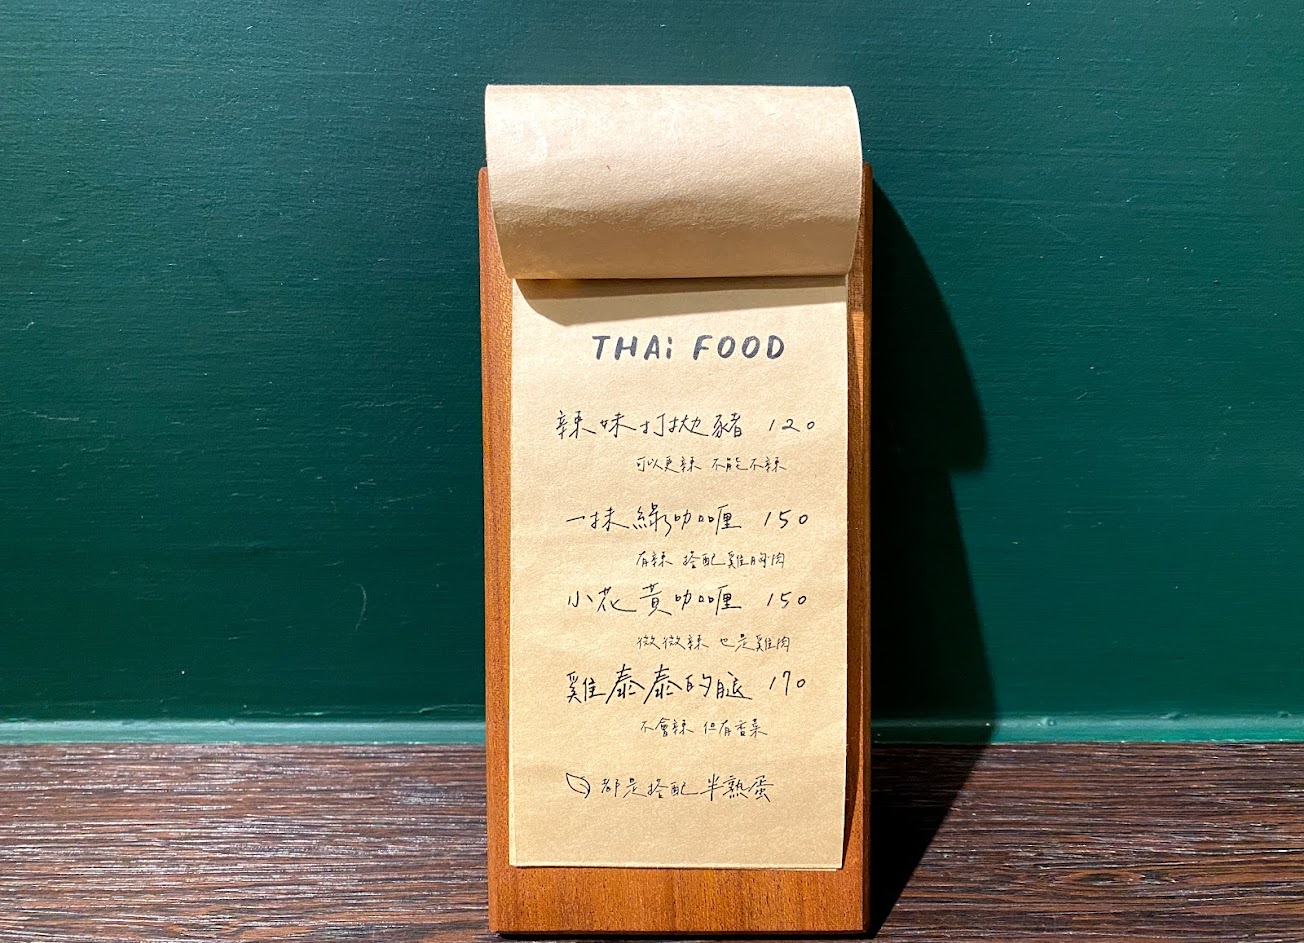 THAi FOOD
辣味打拋豬 120
可以更辣 不能不辣
一抹綠咖喱 150
有辣 搭配雞胸肉
小花黃咖喱 150
微微辣 也是雞肉
雞泰泰的腿 170
不會辣 但有香菜
都是搭配半熟蛋